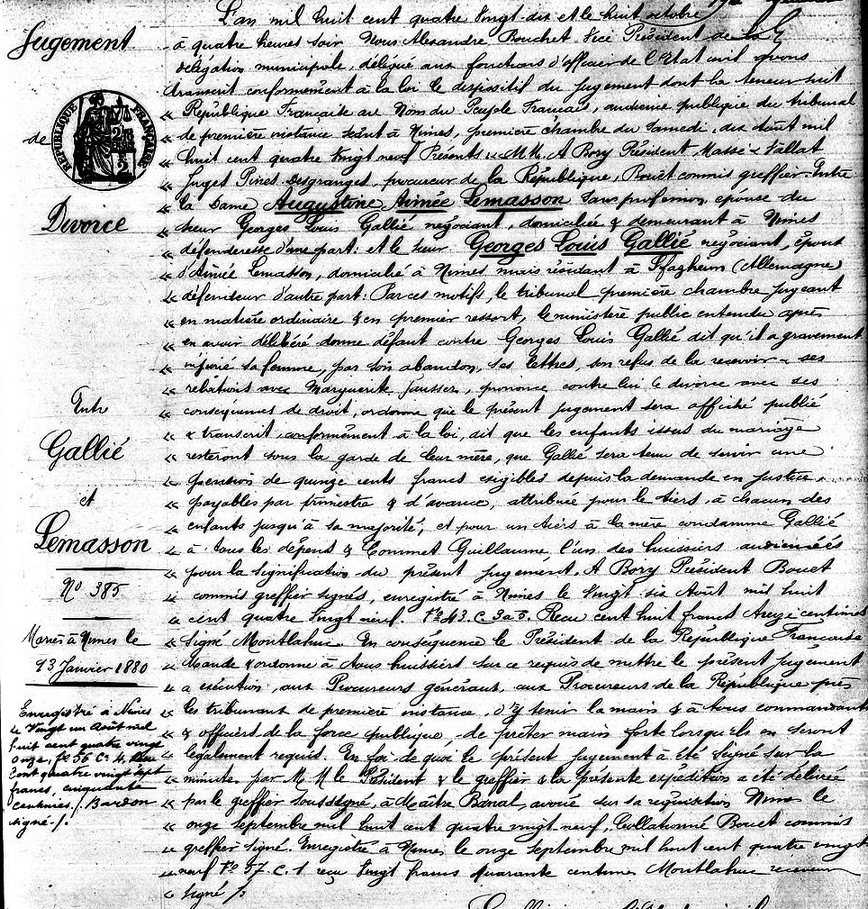 Jugement
de
RÉPUBLIQUE FRANÇAISE
Divorce
Entre
Gallié
et
Lemasson
No 385
Mariés à Nimes le
13 Janvier 1880
Enregistré à Nimes
le Vingt un Août mil
huit cent quatre vingt
onze, fo 56 C. 4. Reçu
Cent quatre vingt sept
francs, cinquante
centimes./. Bardon
signé./.
L'an mil huit cent quatre Vingt dix et le huit octobre
à quatre heures soir Nous Alexandre Bouchet Vice Président de la
délégation municipale, délégué aux fonctions d'officier de l'Etat civil avons
transcrit conformément à la loi le dispositif du jugement dont la teneur suit
« République Française au Nom du Peuple Français, audience publique du tribunal
« de première instance séant à Nimes, première chambre du Samedi, dix Août mil
« huit cent quatre Vingt neuf Présents M.M. A Bory Président, Massé & Vallat
« Juges Pinet Desgranges, procureur de la République, Bouet commis greffier. Entre
« la Dame Augustine Aimée Lemasson sans profession, épouse du
« sieur Georges Louis Gallié négociant, domiciliée & demeurant à Nimes
« défenderesse d'une part: et le sieur Georges Louis Gallié négociant, époux
« d'Aimée Lemasson, domicilié à Nimes mais résident à (Allemagne)
« défendeur d'autre part: Par ces motifs, le tribunal première chambre jugeant
« en matière ordinaire & en premier ressort, le ministère public entendu après
« en avoir délibéré donne défaut contre Georges Louis Gallié dit qu'il a gravement
« injurié sa femme, par son abandon, ses lettres, son refus de la recevoir & ses
« relations avec Marguerite prononce contre lui le divorce avec ses
« conséquences de droit, ordonne que le présent jugement sera affiché publié
« & transcrit conformément à la loi, dit que les enfants issus du mariage
« resteront sous la garde de leur mère, que Gallié sera tenu de servir une
« pension de quinze cents francs exigibles depuis la demande en Justice
« payables par trimestre & d'avance, attribuée pour le tiers, à chacun des
« enfants jusqu'à sa majorité, et pour un tiers à la mère condamne Gallié
« à tous les dépens & Commet Guillaume l'un des huissiers audienciés
« pour la signification du présent jugement, A Bory Président Bouet
« commis greffier signés, enregistré à Nimes le Vingt six Août mil huit
« cent quatre Vingt neuf. Fo 43. C. 3 a 5. Reçu cent huit francs centimes
« Signé Montlahuc. En conséquence le Président de la République Française
« Mande & ordonne à tous huissiers sur ce requis de mettre le présent jugement
« a exécution, aux Procureurs généraux, aux Procureurs de la République près
« les tribunaux de première instance, d'y tenir la main & à tous commandants
« & officiers de la force publique, de prêter main forte lorsqu'ils en seront
« légalement requis. En foi de quoi le présent jugement à été Signé sur la
« minute, par M. M le Président & le greffier & la présente expédition a été délivrée
« par le greffier soussigné, à Maître Banal, avoué sur sa réquisition Nimes le
« onze septembre mil huit cent quatre vingt-neuf, Collationné Bouet commis
« greffier signé. Enregistré à Nimes le onze Septembre mil huit cent quatre vingt
« neuf Fo 57. C. 1 reçu Vingt francs quarante centimes Montlahuc receveur
« signé /: